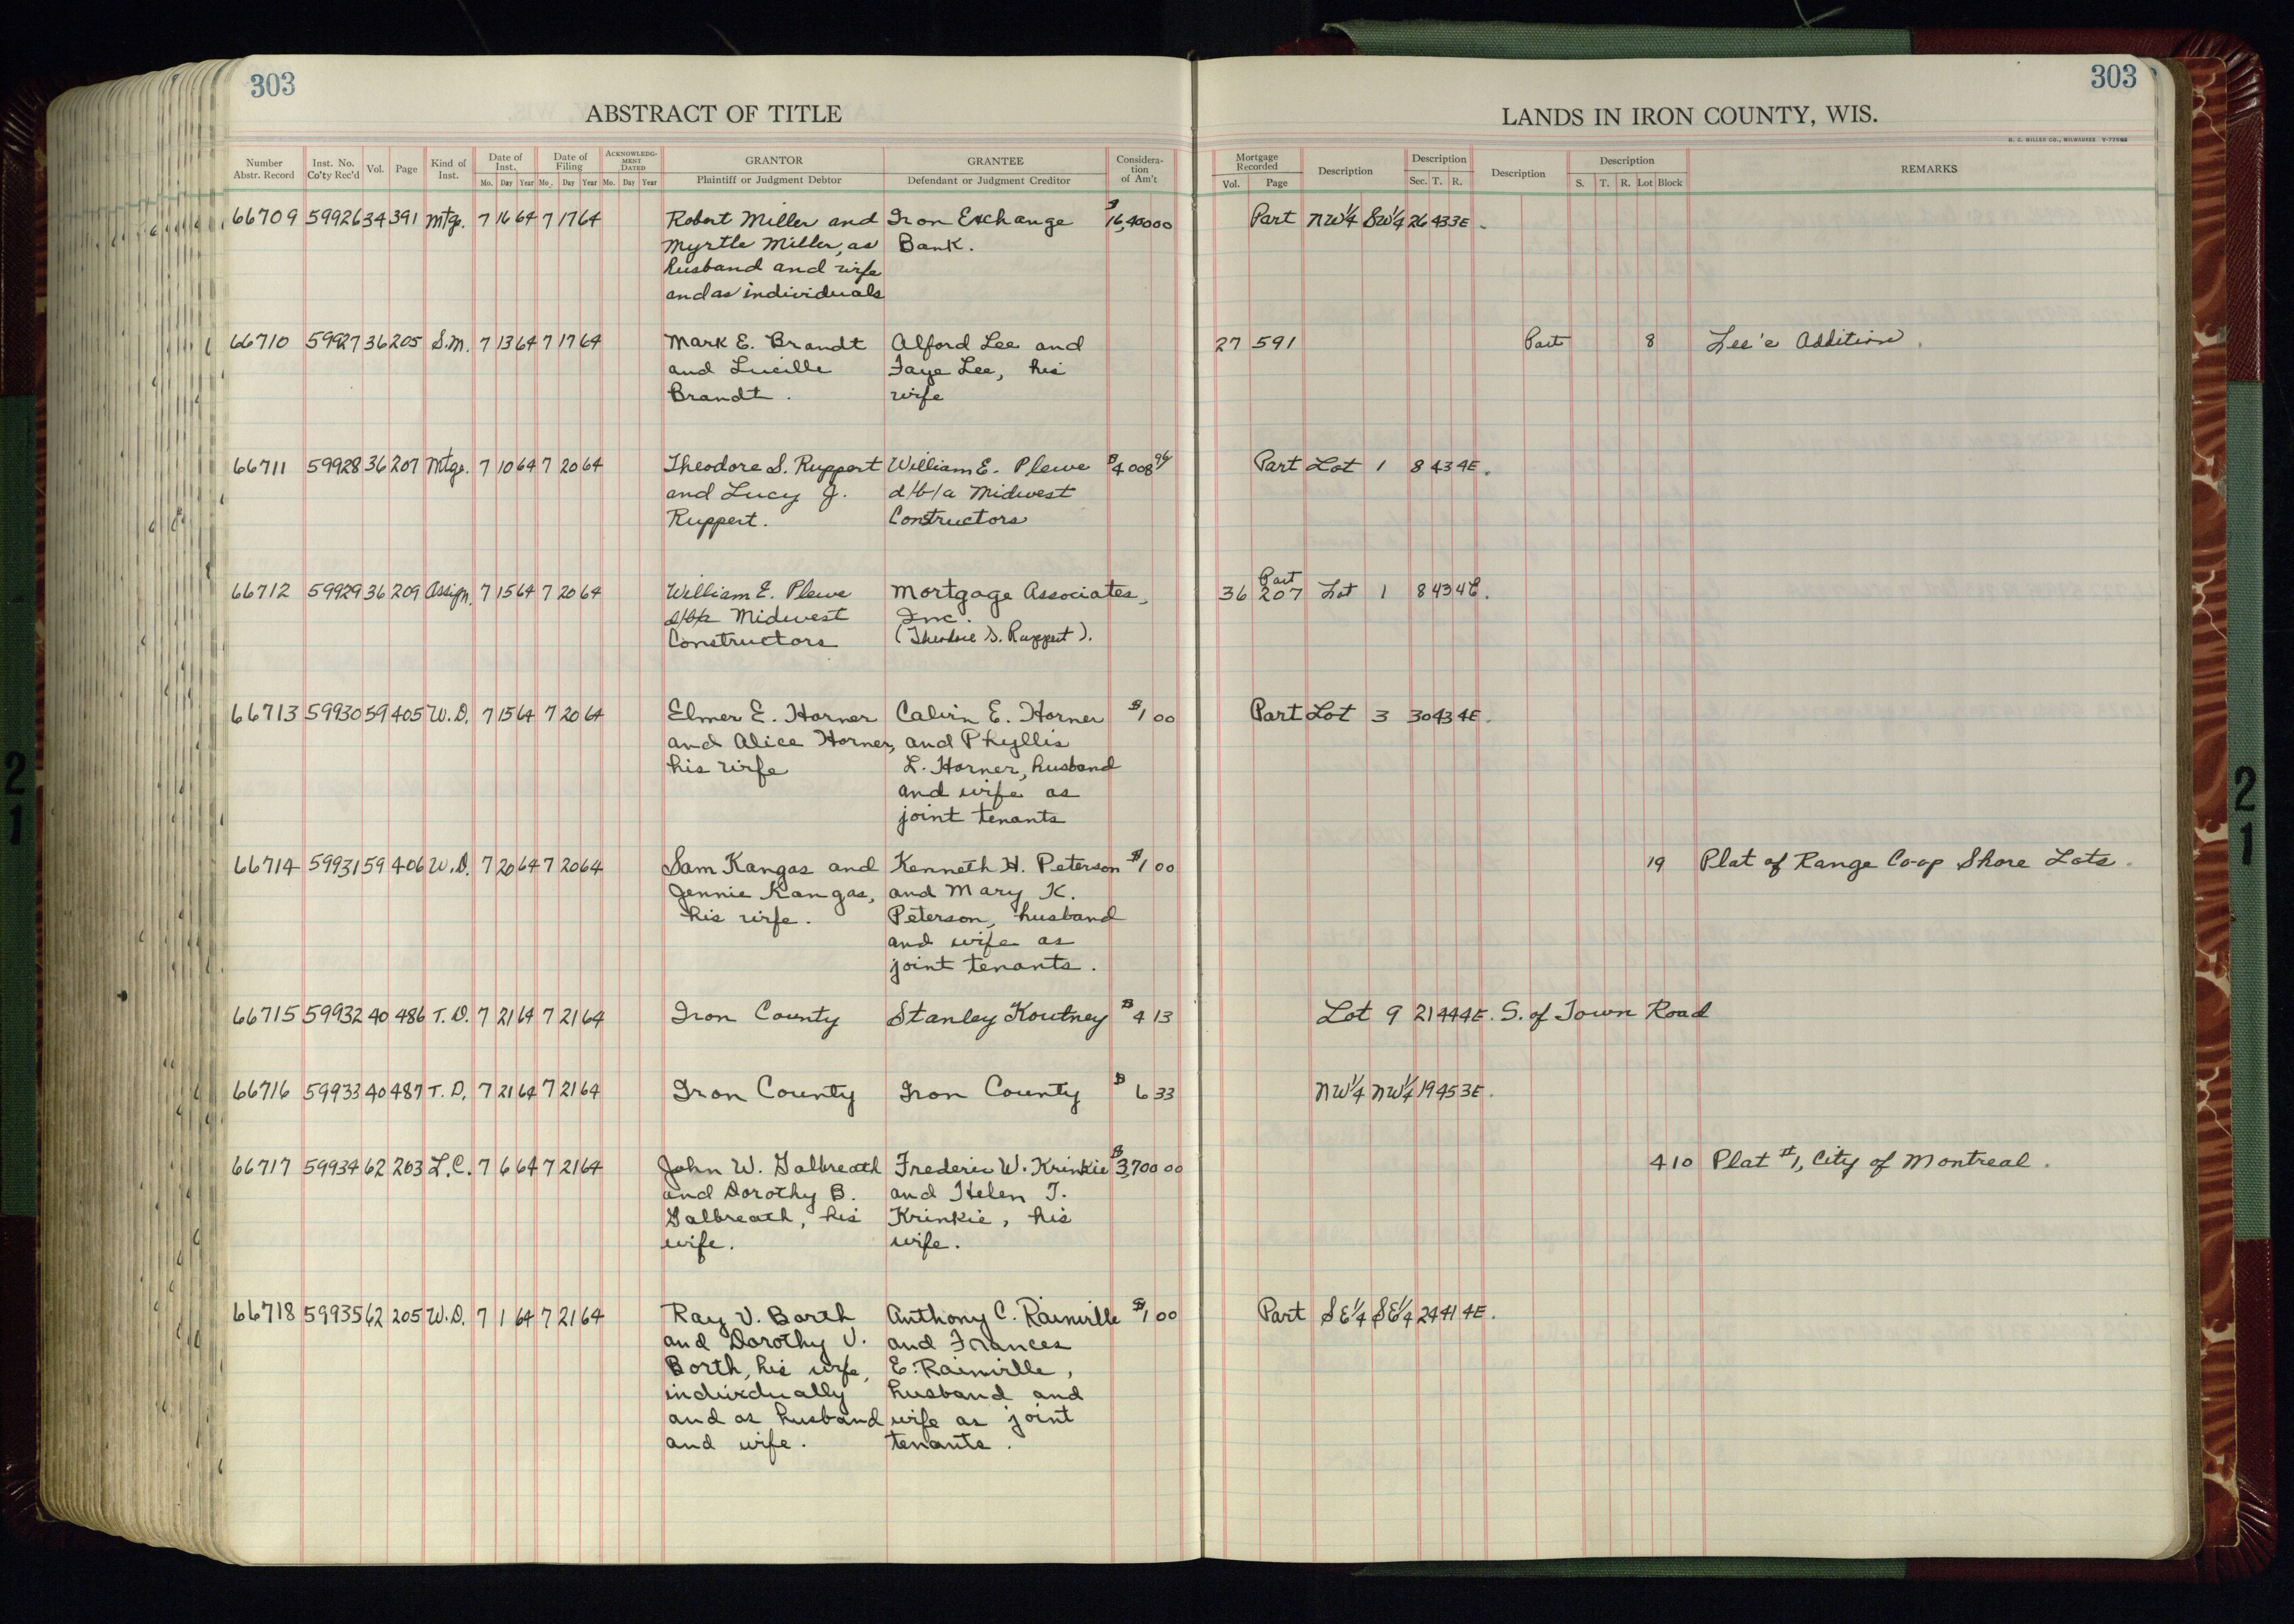 303
303
ABSTRACT OF TITLE
LANDS IN IRON COUNTY, WIS.
H. C. MILLER CO., MILWAUKEE
Number Abstr. Record
Inst. No. Co'ty Rec'd
Vol.
Page
Kind of Inst.
Date of Inst.
Mo. Day Year
Date of Filing
Mo. Day Year
ACKNOWLEDGMENT DATED
Mo. Day Year
GRANTOR
Plaintiff or Judgment Debtor
GRANTEE
Defendant or Judgment Creditor
Consideration of Am't
Mortgage Recorded
Vol. Page
Description
Description
Sec. T. R.
Description
Description
S. T. R. Lot Block
REMARKS
66709 59926 34 391 Mtg. 7 16 64 7 17 64 Robert Miller and Iron Exchange $16,400 00 Part NW1/4 SW1/4 26 43 3E.
Myrtle Miller, as Bank.
husband and wife
and as individuals
66710 59927 36 205 S.M. 7 13 64 7 17 64 Mark E. Brandt Alford Lee and 27 591 Part 8 Lee's Addition.
and Lucille Faye Lee, his
Brandt. wife
66711 59928 36 207 Mtge. 7 10 64 7 20 64 Theodore S. Ruppert William E. Plewe $4 008 96 Part Lot 1 8 43 4E.
and Lucy J. d/b/a Midwest
Ruppert. Constructors
66712 59929 36 209 Assign. 7 15 64 7 20 64 William E. Plewe Mortgage Associates, 36 207 Part Lot 1 8 43 4E.
d/b/a Midwest Inc.
Constructors (Theodore S. Ruppert).
66713 59930 59 405 W.D. 7 15 64 7 20 64 Elmer E. Horner Calvin E. Horner $1 00 Part Lot 3 30 43 4E.
and Alice Horner, and Phyllis
his wife L. Horner, husband
and wife as
joint tenants
66714 59931 59 406 W.D. 7 20 64 7 20 64 Sam Kangas and Kenneth H. Peterson $1 00 19 Plat of Range Co-op Shore Lots.
Jennie Kangas, and Mary K.
his wife. Peterson, husband
and wife as
joint tenants.
66715 59932 40 486 T.D. 7 21 64 7 21 64 Iron County Stanley Koutney $4 13 Lot 9 21 44 4E. S. of Town Road
66716 59933 40 487 T.D. 7 21 64 7 21 64 Iron County Iron County $6 33 NW1/4 NW1/4 19 45 3E.
66717 59934 62 203 L.C. 7 6 64 7 21 64 John W. Galbreath Frederic W. Krinkie $3,700 00 4 10 Plat #1, City of Montreal.
and Dorothy B. and Helen T.
Galbreath, his Krinkie, his
wife. wife.
66718 59935 62 205 W.D. 7 1 64 7 21 64 Ray V. Borth Anthony C. Rainville $1 00 Part SE1/4 SE1/4 24 41 4E.
and Dorothy V. and Frances
Borth, his wife, E. Rainville,
individually husband and
and as husband wife as joint
and wife. tenants.
21
21